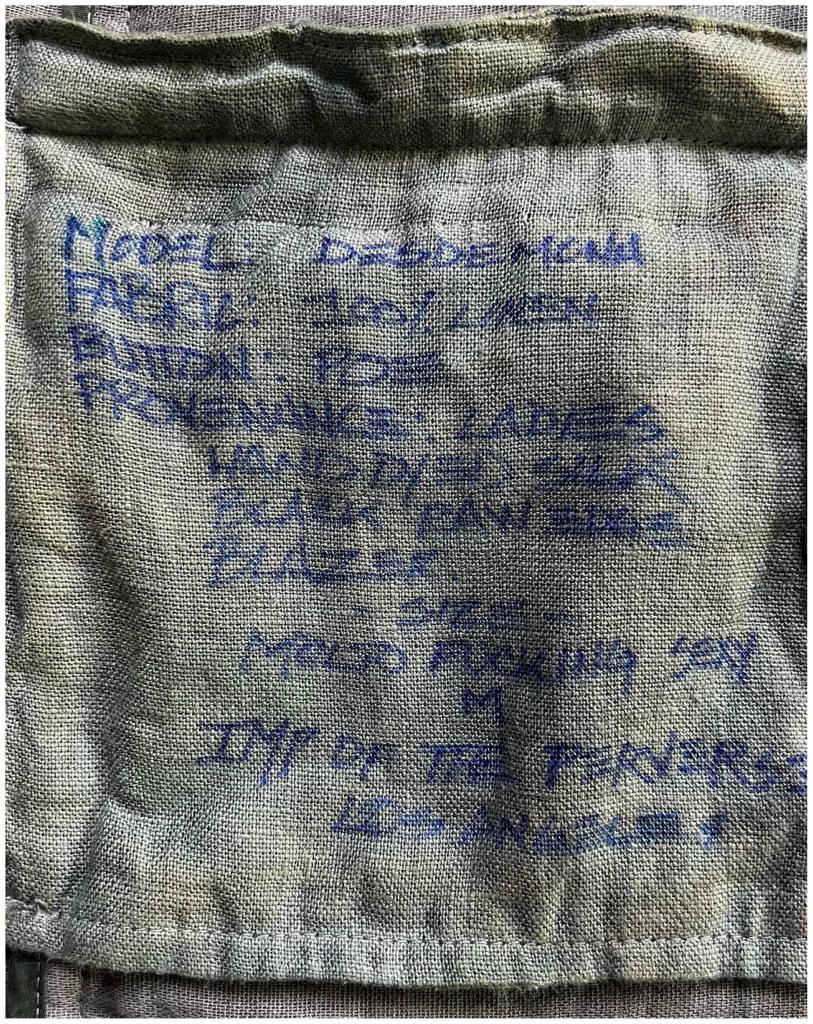 MODEL: DESDEMONA
FABRIC: 100% LINEN
BUTTON: POE
PROVENANCE: LADIES
HAND DYED SILK
BLACK RAW EDGE
BLAZER.
- SIZE -
MOLTO FUCKING SEXY
M
IMP OF THE PERVERSE
LOS ANGELES